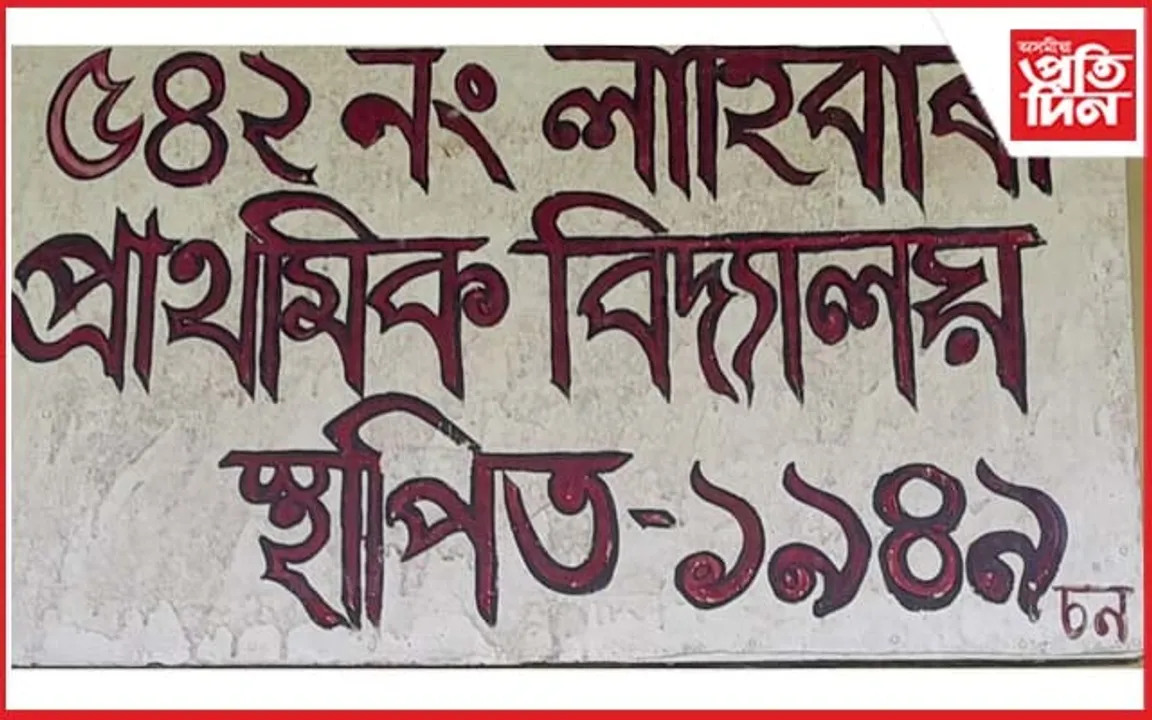 ৫৪২ নং
প্ৰাথমিক বিদ্যালয়
স্থাপিত-১৯৪৯ চন
অসমীয়া
প্ৰতি
দিন